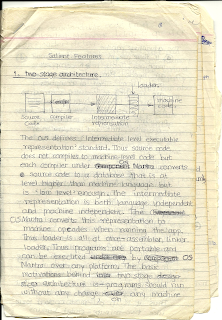 Salient Features
1. Two stage architecture.
loader
Source Code
Compiler
Intermediate representation
machine code
The defines intermediate level executable
representation standard. Thus source code
does not compiles to machine level code but
each compiler under converts
source code to database that is at
level higher than machine language but
is low level enough. The intermediate
representation is both language independent
and machine independent. The
converts this representation to
machine opcodes when running the app.
Thus loader is all at once - assembler, linker,
loader. Thus programs are portable and
can be executed by
over any platform. The basic
two stage
architecture is programs should run
without any change over any machine